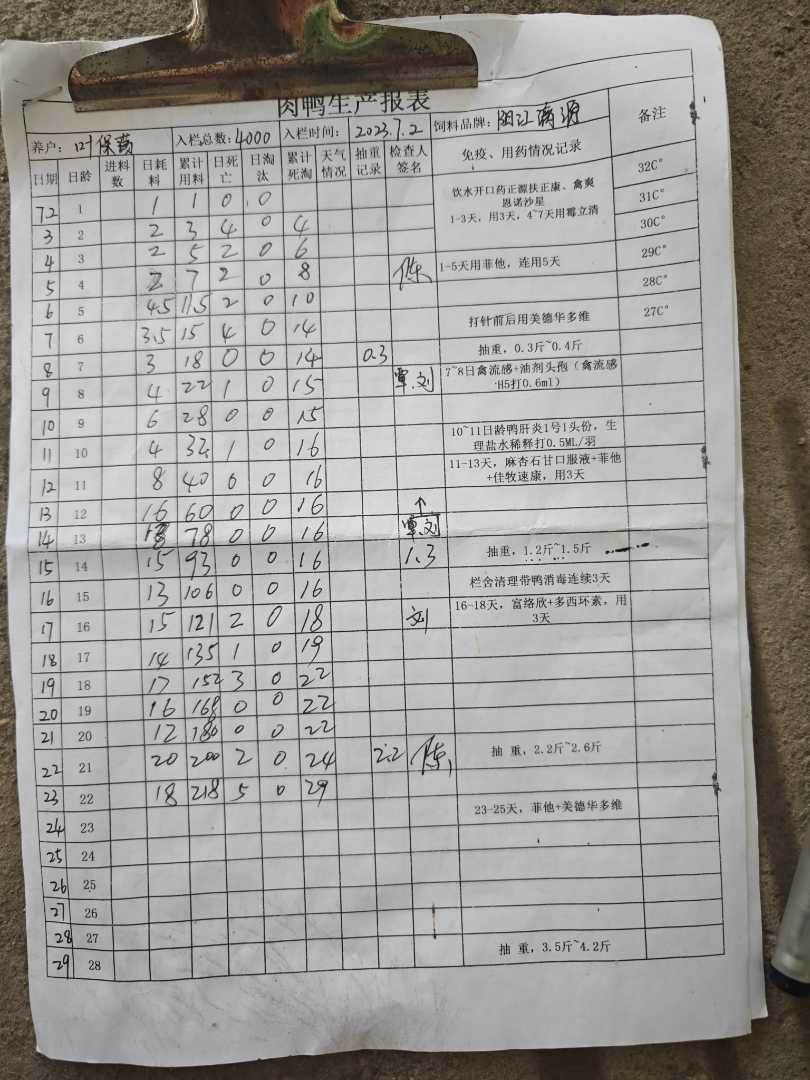 肉鸭生产报表
养户: 叶保 入栏总数:4000 入栏时间: 2023.7.2 饲料品牌: 阳江 备注
日期 日龄 进料数 日耗料 累计用料 日死亡 日淘汰 累计死淘 天气情况 抽重记录 检查人签名 免疫、用药情况记录
7.2 1 1 1 0 0 饮水开口药正源扶正康、禽爽恩诺沙星 32C°
1-3天，用3天，4~7天用霉立清 31C°
3 2 2 3 4 0 4 30C°
4 3 2 5 2 0 6 29C°
5 4 2 7 2 0 8 陈 1-5天用菲他，连用5天
6 5 4.5 11.5 2 0 10 28C°
7 6 3.5 15 4 0 14 打针前后用美德华多维 27C°
8 7 3 18 0 0 14 0.3 抽重，0.3斤~0.4斤
9 8 4 22 1 0 15 覃.刘 7~8日禽流感+油剂头孢（禽流感H5打0.6ml）
10 9 6 28 0 0 15
11 10 4 32 1 0 16 10~11日龄鸭肝炎1号1头份，生理盐水稀释打0.5ML/羽
12 11 8 40 0 0 16 11-13天，麻杏石甘口服液+菲他+佳牧速康，用3天
13 12 16 60 0 0 16 ↑
14 13 18 78 0 0 16 覃.刘
15 14 15 93 0 0 16 1.3 抽重，1.2斤~1.5斤
16 15 13 106 0 0 16 栏舍清理带鸭消毒连续3天
17 16 15 121 2 0 18 刘 16-18天，富络欣+多西环素，用3天
18 17 14 135 1 0 19
19 18 17 152 3 0 22
20 19 16 168 0 0 22
21 20 12 180 0 0 22
22 21 20 200 2 0 24 2.2 陈 抽 重，2.2斤~2.6斤
23 22 18 218 5 0 29
24 23 23-25天，菲他+美德华多维
25 24
26 25
27 26
28 27
29 28 抽 重，3.5斤~4.2斤